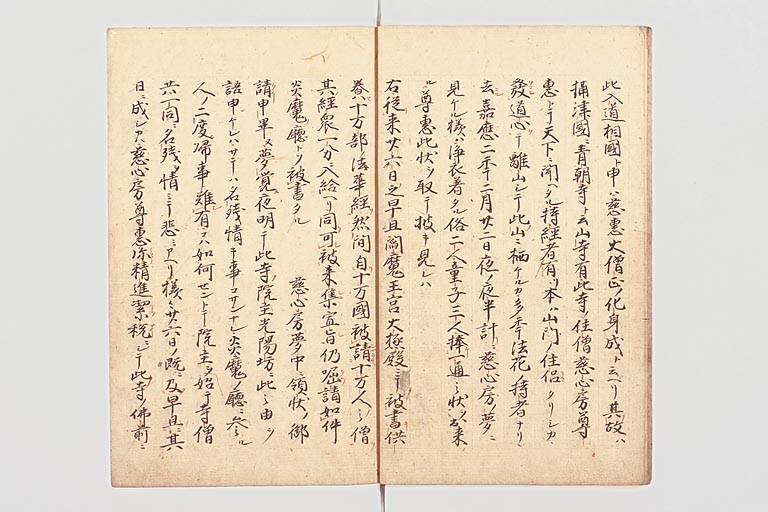 此入道相國ト申ハ慈惠大僧正ノ化身成ト云ヘリ其故ハ
攝津國ニ青朝寺ト云山寺有此寺ノ住僧慈心房尊
惠トテ天下ニ聞ヘタル持經者有リ本ハ山門ノ住侶タリシカ
發道心シテ離山シテ此山ニ栖ケルカ多年法花ノ持者ナリ
去嘉應二年十二月廿二日夜ノ夜半計ニ慈心房ノ夢ニ
見ケル様ハ淨衣着タル俗二人童子三人捧一通之状ヲ出来
ル尊惠此状ヲ取テ披キ見レハ
右従来廿六日之早旦閻魔王宮大極殿ニテ被書供
巻八十万部ノ法華經然間自十万國被請十万人之僧
其經衆一分ニ入給ヘリ同可被来集宣旨仍啒請如件
炎魔廳トソ被書タル 慈心房夢中ニ領状ノ御
請申畢ヌ夢覚夜明テ此寺院主光陽坊ニ此之由ヲ
語申ケレハサテハ名残情キ事コサンナレ炎魔ノ廳ニ参ル
人ノ二度帰事難有コハ如何セントテ院主ヲ始テ寺僧
共一同ニ名残ヲ情ミテ悲ミアヘリ様々廿六日ノ既ニ及早旦ニ其
日ニ成シカハ慈心房尊惠弥精進潔税ニシテ此寺ノ佛前ニ